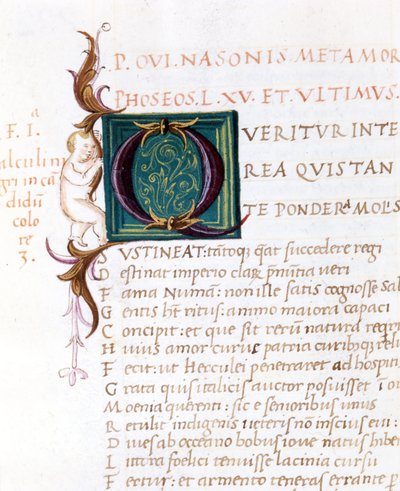 P. OVI. NASONIS. METAMOR
PHOSEOS. L. XV. ET. VITIMVS.
a
F. I.
alculi ni
gri in cā
didū
colo
re
3.
QVERITVR INTE
REA QVIS TAN
TE PONDERA MOLIS
SVSTINEAT: tātoq; q̄at succedere regi
Destinat imperio clarꝫ pnūtia veri
Fama Numā: non ille satis cognosse Sab
Gentis h̄t ritus: animo maiora capaci
Concipit: et que sit rerū natura reqri
Huius amor curue patria curibusq; reli
Fecit: ut Herculei penetraret ad hospiti
Grata quis italicis auctor posuisset i or
Moenia querenti: sic e senioribus unus
Retulit indigenis ueteris nō inscius eui:
Dives ab occeano bobus ioue natus hiber
Littora foelici tenuisse lacinia cursu
Fertur: et armento teneras errante p